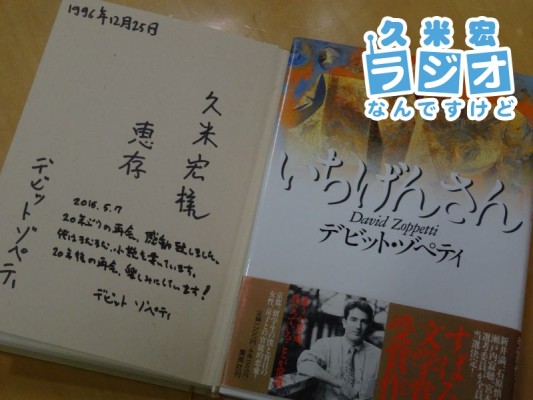 1996年12月25日
久米宏様
恵存
デビット ゾペティ
2016.5.7
20年ぶりの再会、感動致しました。
20年後の再会、楽しみにしています!
デビット ゾペティ
久米宏
ラジオ
なんですけど
いちげんさん
David Zoppetti
デビット・ゾペティ
すばる
文学賞
受賞作